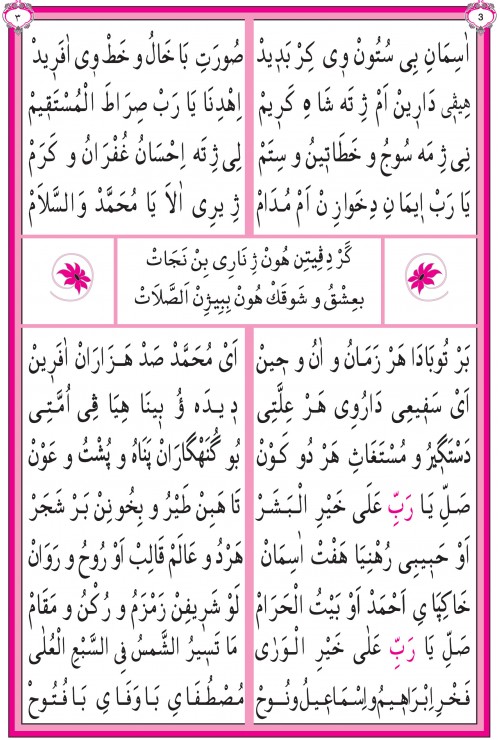 ٣
3
اٰسِمَانِ بِی سُتُونْ وِی کِرْ بَدِیدْ
صُورَتِ بَا خَالُ و خَطْ وِی اٰفَرِیدْ
هِیڤِی دَارِینْ اَمْ ژِ تَه شَاهِ کَرِیمْ
اِهْدِنَا یَا رَبْ صِرَاطَ الْمُسْتَقِیمْ
نِی ژِ مَه سُوجُ و خَطَائِینُ و سِتَمْ
لِی ژِ تَه اِحْسَانُ غُفْرَانُ و کَرَمْ
یَا رَبْ اِیمَانِ دِخَوازِنْ اَمْ مُدَامْ
ژِ یرِی اَلَا یَا مُحَمَّدْ وَالسَّلَامْ
گَرْ دِڤِیتِنْ هُونْ ژِ نَارِی بِنْ نَجَاتْ
بِعِشْقُ و شَوقَكْ هُونْ بِبِیژِنْ اَلصَّلَاتْ
بَرْ تُو بَادَا هَرْ زَمَانُ و اٰنُ و حِینْ
اَیْ مُحَمَّدْ صَدْ هَزَارَانْ اٰفَرِینْ
اَیْ سَفِیعِی دَارُوِی هَرْ عِلَّتِی
دِیدَه ؤُ بِینَا هِیَا ڤِی اُمَّتِی
دَسْتَگِیرُ و مُسْتَغَاثِ هَرْ دُو کَوْنْ
بُو گُنَهْگَارَانْ پَنَاهُ و پُشْتُ و عَوْنْ
صَلِّ یَا رَبِّ عَلَی خَیْرِ الْبَشَرْ
تَا هَبِنْ طَیْرُ و بِخُونِنْ بَرْ شَجَرْ
اَوْ حَبِیبِی رُهْنِیَا هَفْتْ اٰسِمَانْ
هَرْدُ و عَالَمْ قَالِبْ اَوْ رُوحُ و رَوَانْ
خَاکِپَایِ اَحْمَدْ اَوْ بَیْتُ الْحَرَامْ
لَوْ شَرِیفِنْ زَمْزَمُ و رُکْنُ و مَقَامْ
صَلِّ یَا رَبِّ عَلٰی خَیْرِ الْوَرٰی
مَا تَسِیرُ الشَّمْسُ فِی السَّبْعِ الْعُلٰی
فَخْرِ اِبْرَاهِیمُ و اِسْمَاعِیلُ و نُوحْ
مُصْطَفَایِ بَا وَفَایِ بَا فُتُوحْ